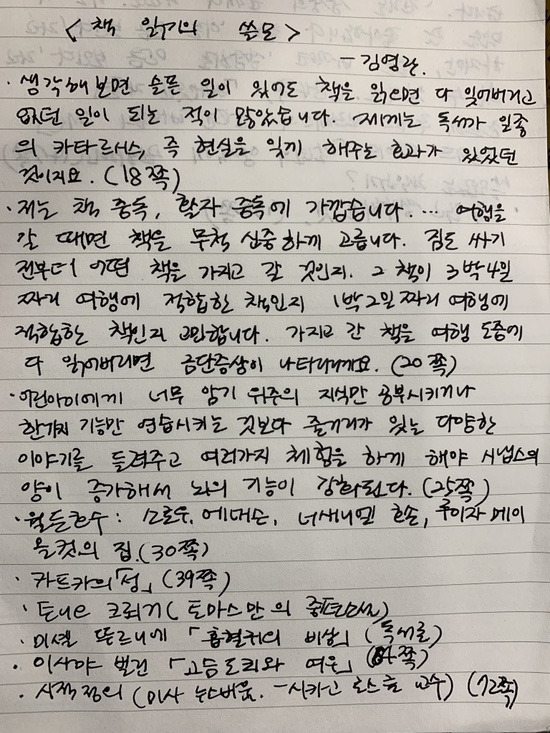 < 책 읽기의 쓸모 >
- 김영란.
· 생각해보면 슬픈 일이 있어도 책을 읽으면 다 잊어버리고
없던 일이 되는 적이 많았습니다. 제게는 독서가 일종
의 카타르시스, 즉 현실을 잊게 해주는 효과가 있었던
것이지요. (18쪽)
· 저는 책 중독, 활자 중독에 가깝습니다. ... 여행을
갈 때면 책을 무척 신중하게 고릅니다. 짐도 싸기
전부터 어떤 책을 가지고 갈 것인지. 그 책이 3박4일
짜리 여행에 적합한 책인지 1박2일짜리 여행에
적합한 책인지 고민합니다. 가지고 간 책을 여행 도중에
다 읽어버리면 금단증상이 나타나니까요. (20쪽)
· 어린아이에게 너무 암기 위주의 지식만 공부시키거나
한가지 기능만 연습시키는 것보다 줄거리가 있는 다양한
이야기를 들려주고 여러가지 체험을 하게 해야 시냅스의
양이 증가해서 뇌의 기능이 강화된다. (25쪽)
· 월든호수 : 소로우, 에머슨, 너새니엘 호손, 루이자 메이
올컷의 집 (30쪽)
· 카프카의「성」(39쪽)
· 토니오 크뢰거 (토마스만의 중편소설)
· 미셸 뚜르니에 「흡혈귀의 비상」 (독서론)
· 이사야 벌린 「고슴도치와 여우」 (64쪽)
· 시적정의 (마사 누스바움. - 시카고 로스쿨 교수) (72쪽)